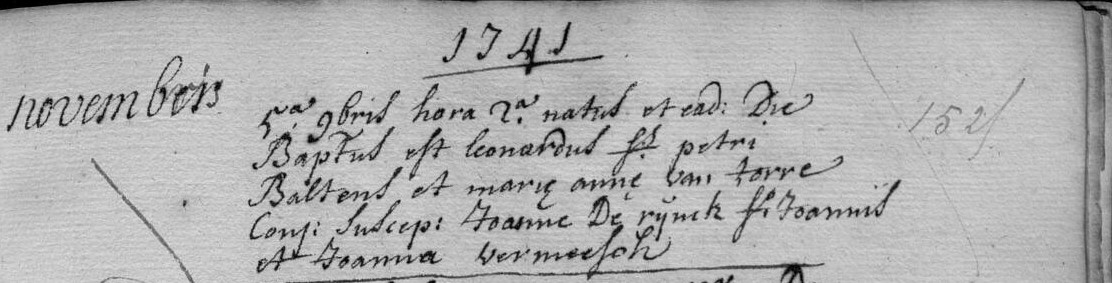 1741
novembris
5.a 9bris hora 2.a natus et ead: Die
Baptus est leonardus fs petri
Baltens et marię annę van torre
Conj: Suscep: Joanne De rijnck fs Joannis
et Joanna vermeesch
152